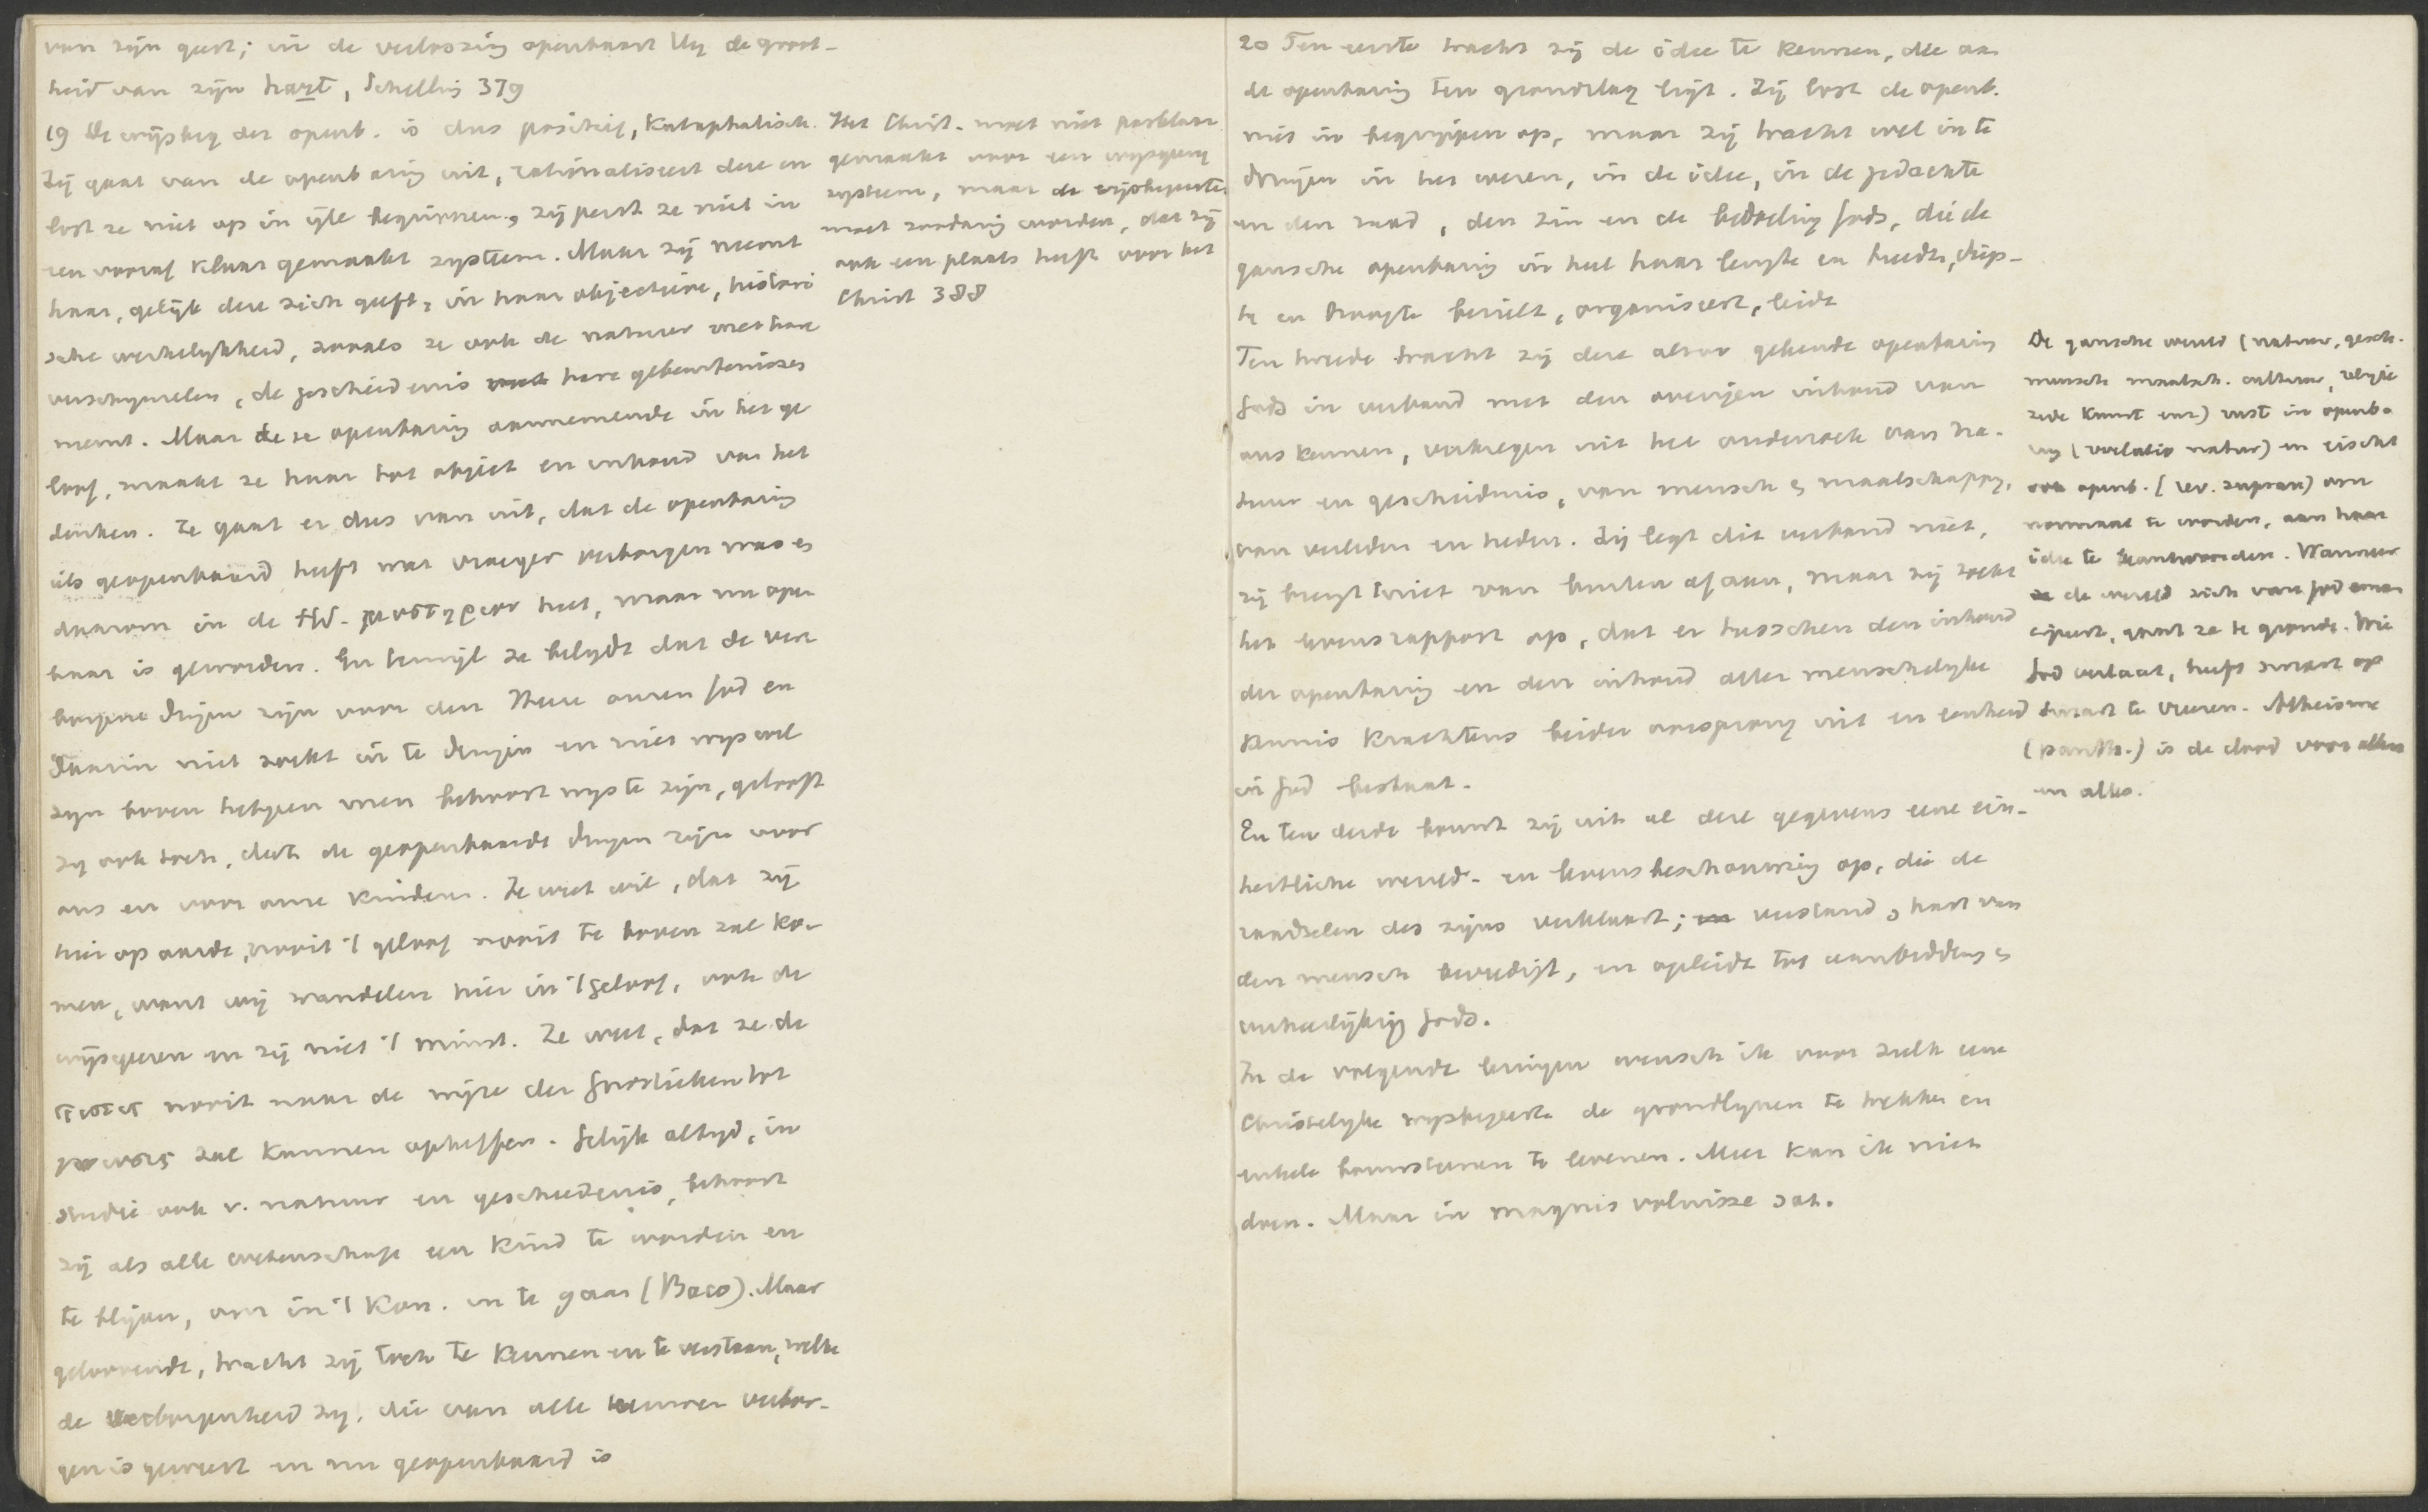 van zijn geest; in de verlossing openbaart Hij de groot-
heid van zijn hart, Schelling 379
19 De wijsbeg der openb. is dus positief, kataphatisch.
Zij gaat van de openbaring uit, rationaliseert deze en
lost ze niet op in ijle begrippen, zij perst ze niet in
een vooraf klaar gemaakt systeem. Maar zij neemt
haar, gelijk deze zich geeft, in haar objectieve, histori
sche werkelijkheid, zooals ze ook de natuur met hare
verschijnselen, de geschiedenis met hare gebeurtenissen
neemt. Maar deze openbaring aannemende in het ge
loof, maakt ze haar tot object en inhoud van het
denken. Ze gaat er dus van uit, dat de openbaring
als geopenbaard heeft wat vroeger verborgen was en
daarom in de HS. μυστηριον heet, maar nu open
baar is geworden. En terwijl ze belijdt dat de ver
borgene dingen zijn voor den Heere onzen God en
daarin niet zoekt in te dringen en niet wijs wil
zijn boven hetgeen men behoort wijs te zijn, gelooft
zij ook toch, dat de geopenbaarde dingen zijn voor
ons en voor onze kinderen. Ze weet wel, dat zij
hier op aarde, nooit 't geloof nooit te boven zal ko-
men, want wij wandelen hier in 't geloof, ook de
wijsgeeren en zij niet 't minst. Ze weet, dat ze de
πιστις nooit naar de wijze der Gnostieken tot
γνωσις zal kunnen opheffen. Gelijk altijd, in
studie ook v. natuur en geschiedenis, behoort
zij als alle wetenschap een kind te worden en
te blijven, om in 't Kon. in te gaan (Baco). Maar
geloovende, tracht zij toch te kennen en te verstaan, welke
de verborgenheid zij, die van alle eeuwen verbor-
gen is geweest en nu geopenbaard is
Het Christ. moet niet pasklaar
gemaakt voor een wijsgeerig
systeem, maar de wijsbegeerte
moet zoodanig worden, dat zij
ook een plaats heeft voor het
Christ 388
20 Ten eerste tracht zij de idee te kennen, die aan
de openbaring ten grondslag ligt. Zij lost de openb.
niet in begrippen op, maar zij tracht wel in te
dringen in het wezen, in de idee, in de gedachte
en den raad, den zin en de bedoeling Gods, die de
gansche openbaring in heel haar lengte en breedte, diep-
te en hoogte bezielt, organiseert, leidt
Ten tweede tracht zij deze alzoo gekende openbaring
Gods in verband met den overigen inhoud van
ons kennen, verkregen uit het onderzoek van na-
tuur en geschiedenis, van mensch en maatschappij,
van verleden en heden. Zij legt dit verband niet,
zij brengt 't niet van buiten af aan, maar zij zoekt
het levensrapport op, dat er tusschen den inhoud
der openbaring en den inhoud aller menschelijke
kennis krachtens beider oorsprong uit en eenheid
in God bestaat.
En ten derde bouwt zij uit al deze gegevens eene ein-
heitliche wereld- en levensbeschouwing op, die de
raadselen des zijns verklaart; verstand en hart van
den mensch bevredigt, en opleidt tot aanbidding en
verheerlijking Gods.
In de volgende lezingen wensch ik voor zulk eene
Christelijke wijsbegeerte de grondlijnen te trekken en
enkele bouwsteenen te leveren. Meer kan ik niet
doen. Maar in magnis voluisse sat.
De gansche wereld (natuur, gesch.
mensch maatsch. cultuur, religie
zede kunst enz) rust in openba
ring (revelatio natur) en eischt
ook openb. (rev. supran) om
normaal te worden, aan haar
idee te beantwoorden. Wanneer
de wereld zich van God eman
cipeert, gaat ze te gronde. Wie
God verlaat, heeft smart op
smart te vreezen. Atheisme
(panth.) is de dood voor allen
en alles.